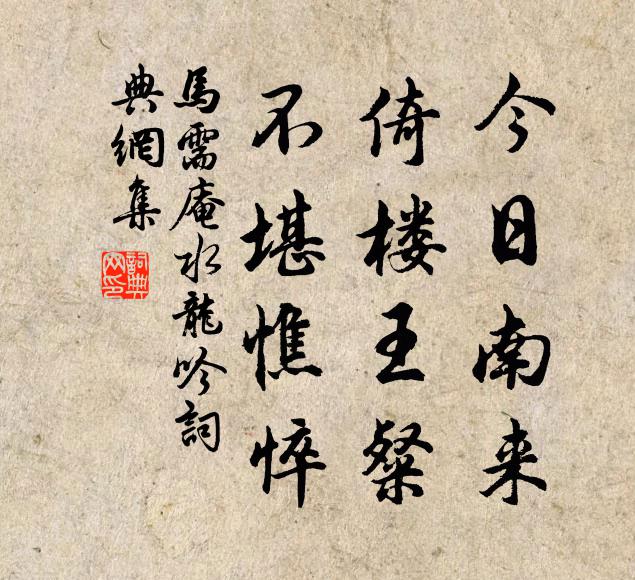 今日南来
倚楼王粲
不堪憔悴
馬需庵水龍吟詞
典網集
詞典網印